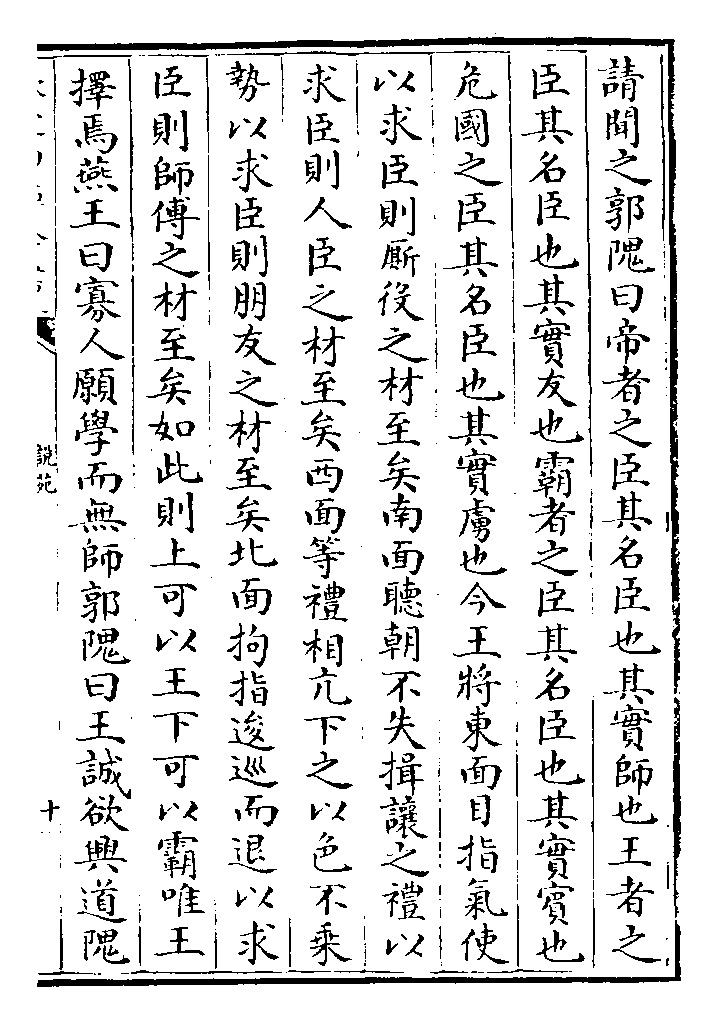 請聞之郭隗曰帝者之臣其名臣也其實師也王者之
臣其名臣也其實友也霸者之臣其名臣也其實賓也
危國之臣其名臣也其實虜也今王將東面目指氣使
以求臣則厮役之材至矣南面聽朝不失揖讓之禮以
求臣則人臣之材至矣西面等禮相亢下之以色不乗
勢以求臣則朋友之材至矣北面拘指逡巡而退以求
臣則師傅之材至矣如此則上可以王下可以霸唯王
擇焉燕王曰寡人願學而無師郭隗曰王誠欲興道隗
說苑
十